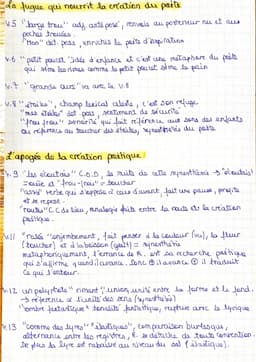 La fugue qui nourrit la création du poète
v.5 "large trou" adj. antéposé, renvoie au postérieur nu et aux
poches trouées.
"Mon" dét. poss,
v.6 "petit poucet" idée d'enfance et c'est une métaphore du poète
qui sème les rimes comme le petit poucet sème le pain
v.7 "grande ourse" va avec le v.8
v.8 "étoiles", champ lexical céleste, c'est son refuge
"mes étoiles" dét. poss, sentiment de sécurité
"frou frou" sonorité qui fait référence aux sons des enfants
ou référence au toucher des étoiles, synesthésie du poète.
L'apogée de la création poétique.
v.9 "les écoutais" C.O.D, la suite de cette synesthésie → "écoutais"
= ouïe et "frou-frou" = toucher
"assis" verbe qui s'oppose à ceux d'avant, fait une pause, profite
et se repose.
"routes" C.C de lieu, analogie faite entre la route et la création
poétique.
v.11 "rosée" enjambement, fait penser à la couleur (vu), la fleur
(toucher) et à la boisson (goût) = synesthésie
métaphoriquement, l'errance de R. est sa recherche poétique
qui s'affirme quand il avance. Donc il avance il traduit
ce qui l'entoure.
v.12 un polyptote "rimant", union, unité entre la forme et le fond.
→ référence à l'unité des sens (synesthésie)
"ombre fantastique" tonalité fantastique, rupture avec le lyrique
v.13 "comme des lyres" "élastiques", comparaison burlesque,
alternance entre les registres, R. se détache de toute convention.
De plus la lyre est rabaissée au niveau du sol (élastique).